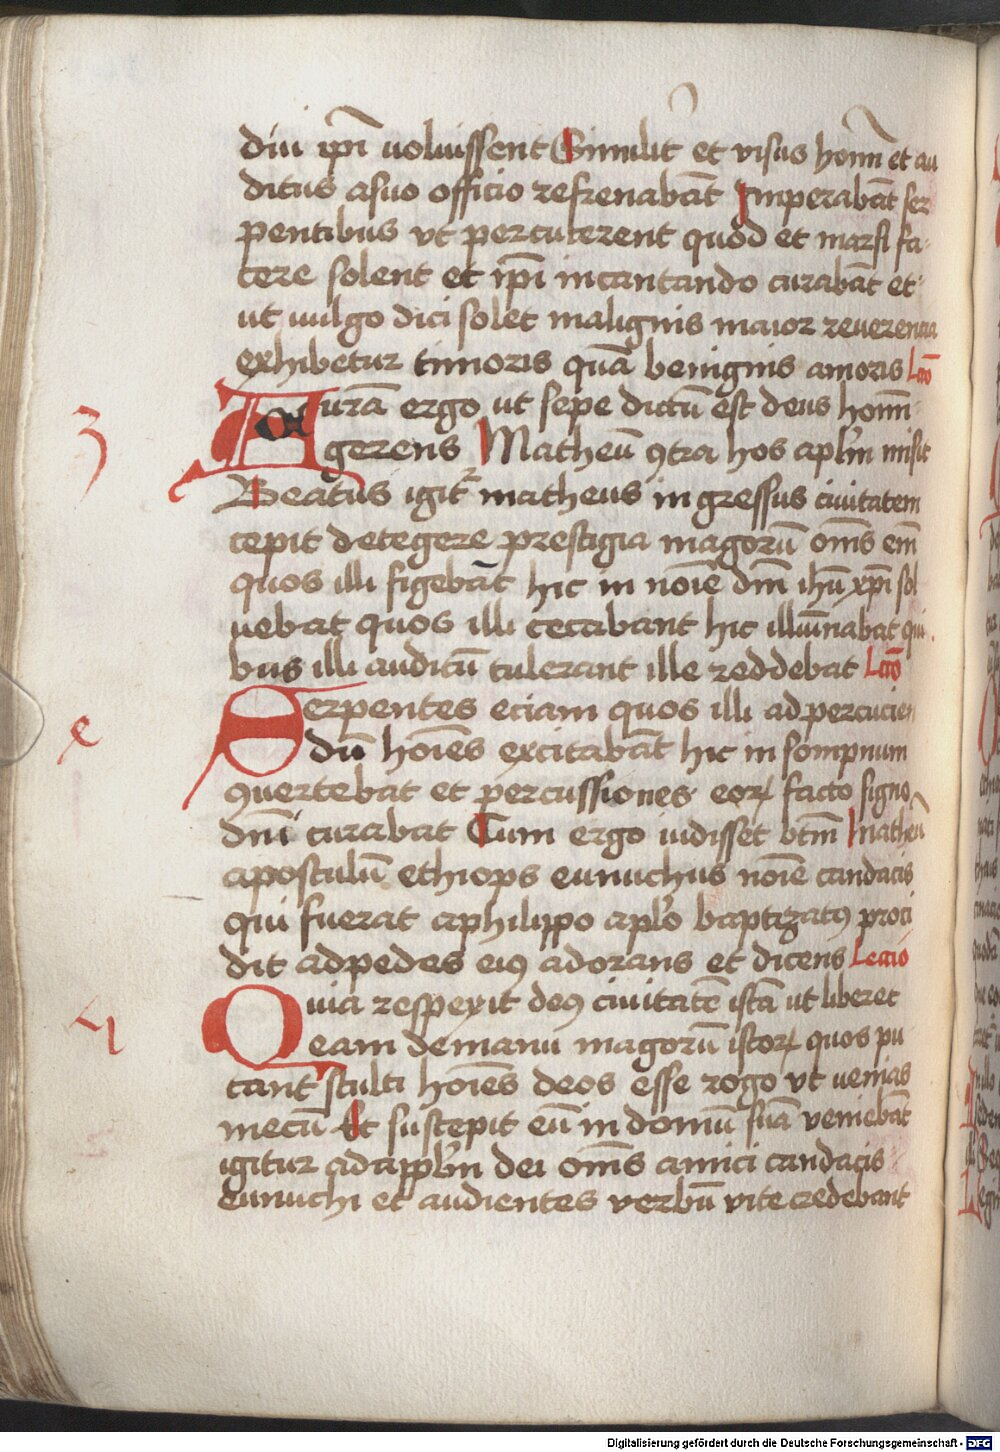 diu ip̄i uoluissent Similit᷑ et visus homī et au
ditus a suo officio refrenabāt Imperabāt ser
pentibus vt percuterent quod et marsi fa
cere solent et ip̄i incantando curabāt et
ut uulgo dici solet malignis maior reuerencia
exhibetur timoris quā benignis amoris Lcō
Curā ergo ut sepe dictū est deus homī
3
gerens Matheū ꝯtra hos apl̄m misit
Beatus igit᷑ matheus ingressus ciuitatem
cepit detegere prestigia magorū om̄s em̄
quos illi figebāt hic in noīe dn̄i ihū xp̄i sol
uebat quos illi cecabant hic illūinabat qui
bus illi auditū tulerant ille reddebat Lcō
Serpentes eciam quos illi ad percucien
e
dū hoīes excitabāt hic in sompnum
ꝯuertebat et percussiones eoꝝ facto signo
dn̄i curabat Cum ergo uidisset btm̄ matheū
apostulū ethiops eunuchus noīe candacis
qui fuerat a philippo aplo baptizatꝰ proci
dit ad pedes eiꝰ adorans et dicens Leccio
Quia respexit deꝰ ciuitatē istā ut liberet
4
eam de manu magorū istoꝝ quos pu
tant stulti hoīes deos esse rogo vt uenias
mecū Et suscepit eū in domū suā veniebāt
igitur ad appl̄m dei om̄s amici candacis
eunuchi et audientes verbū vite credebant
Digitalisierung gefördert durch die Deutsche Forschungsgemeinschaft - DFG